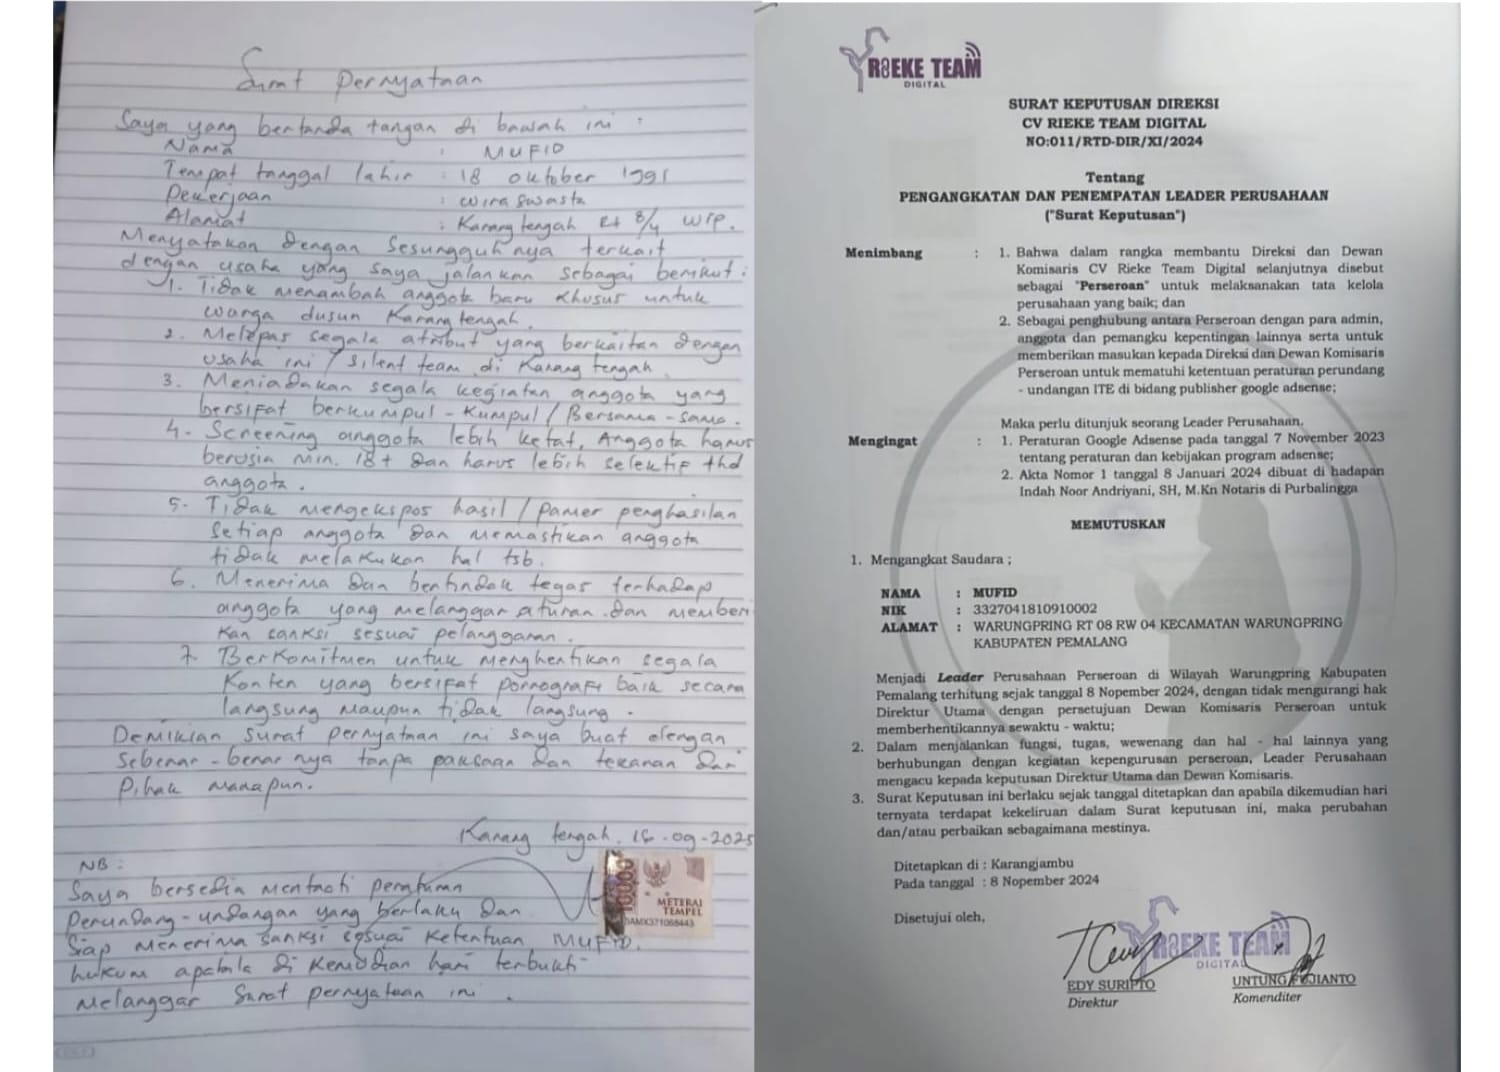 Surat pernyataan
Saya yang bertanda tangan di bawah ini :
Nama : MUFID
Tempat tanggal lahir : 18 oktober 1991
Pekerjaan : wiraswasta
Alamat : Karangtengah Rt 8/4 Wrp.
Menyatakan dengan sesungguhnya terkait
dengan usaha yang saya jalankan sebagai berikut :
1. Tidak menambah anggota baru khusus untuk
warga dusun Karangtengah.
2. Melepas segala atribut yang berkaitan dengan
usaha ini / silent team di Karangtengah.
3. Meniadakan segala kegiatan anggota yang
bersifat berkumpul - kumpul / Bersama - sama.
4. Screening anggota lebih ketat, Anggota harus
berusia Min. 18+ dan harus lebih selektif thd
anggota.
5. Tidak mengekspos hasil / pamer penghasilan
setiap anggota dan memastikan anggota
tidak melakukan hal tsb.
6. Menerima dan bertindak tegas terhadap
anggota yang melanggar aturan dan memberi
kan sanksi sesuai pelanggaran.
7. Berkomitmen untuk menghentikan segala
Konten yang bersifat pornografi baik secara
langsung maupun tidak langsung.
Demikian surat pernyataan ini saya buat dengan
sebenar - benarnya tanpa paksaan dan tekanan dari
pihak manapun.
Karang tengah, 16-09-2025
NB :
Saya bersedia mentaati peraturan
perundang-undangan yang berlaku dan
siap menerima sanksi sesuai ketentuan
hukum apabila di kemudian hari terbukti
melanggar surat pernyataan ini.
10000
METERAI
TEMPEL
MUFID.
R8EKE TEAM
DIGITAL
SURAT KEPUTUSAN DIREKSI
CV RIEKE TEAM DIGITAL
NO:011/RTD-DIR/XI/2024
Tentang
PENGANGKATAN DAN PENEMPATAN LEADER PERUSAHAAN
("Surat Keputusan")
Menimbang : 1. Bahwa dalam rangka membantu Direksi dan Dewan
Komisaris CV Rieke Team Digital selanjutnya disebut
sebagai "Perseroan" untuk melaksanakan tata kelola
perusahaan yang baik; dan
2. Sebagai penghubung antara Perseroan dengan para admin,
anggota dan pemangku kepentingan lainnya serta untuk
memberikan masukan kepada Direksi dan Dewan Komisaris
Perseroan untuk mematuhi ketentuan peraturan perundang
- undangan ITE di bidang publisher google adsense;
Maka perlu ditunjuk seorang Leader Perusahaan.
Mengingat : 1. Peraturan Google Adsense pada tanggal 7 November 2023
tentang peraturan dan kebijakan program adsense;
2. Akta Nomor 1 tanggal 8 Januari 2024 dibuat di hadapan
Indah Noor Andriyani, SH, M.Kn Notaris di Purbalingga
MEMUTUSKAN
1. Mengangkat Saudara ;
NAMA : MUFID
NIK : 3327041810910002
ALAMAT : WARUNGPRING RT 08 RW 04 KECAMATAN WARUNGPRING
KABUPATEN PEMALANG
Menjadi Leader Perusahaan Perseroan di Wilayah Warungpring Kabupaten
Pemalang terhitung sejak tanggal 8 Nopember 2024, dengan tidak mengurangi hak
Direktur Utama dengan persetujuan Dewan Komisaris Perseroan untuk
memberhentikannya sewaktu - waktu;
2. Dalam menjalankan fungsi, tugas, wewenang dan hal - hal lainnya yang
berhubungan dengan kegiatan kepengurusan perseroan, Leader Perusahaan
mengacu kepada keputusan Direktur Utama dan Dewan Komisaris.
3. Surat Keputusan ini berlaku sejak tanggal ditetapkan dan apabila dikemudian hari
ternyata terdapat kekeliruan dalam Surat keputusan ini, maka perubahan
dan/atau perbaikan sebagaimana mestinya.
Ditetapkan di : Karangjambu
Pada tanggal : 8 Nopember 2024
Disetujui oleh,
R8EKE TEAM
DIGITAL
EDY SURIPTO
Direktur
UNTUNG PUJIANTO
Komenditer